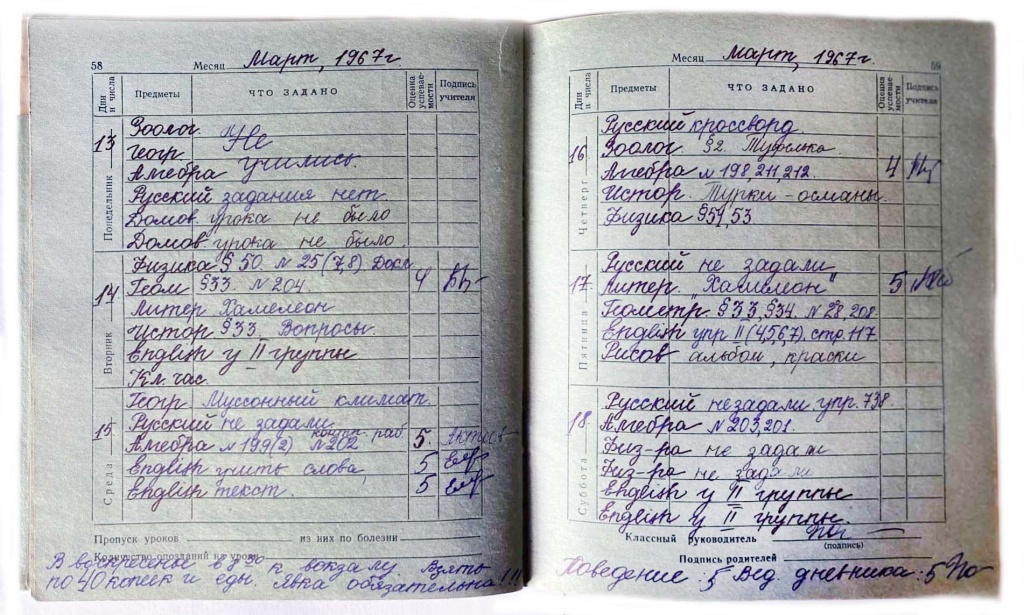 58 Месяц Март, 1967г
Дни и числа Предметы ЧТО ЗАДАНО Оценка успеваемости Подпись учителя
Понедельник 13
Зоолог. Не
Геогр учились.
Алгебра
Русский задания нет
Домов. урока не было
Домов урока не было.
Вторник 14
Физика § 50. № 25(7,8) Докл
Геом §33. № 204. 4
Литер Хамелеон
Истор §33. Вопросы.
English у II группы
Кл. час.
Среда 15
Геогр Муссонный климат.
Русский не задали
контр. раб
Алгебра №199(2) №202 5.
English учить слова 5
English текст. 5
Пропуск уроков из них по болезни
Количество опозданий на уроки
В воскресенье в 8 30 к вокзалу взять
по 40 копеек и еды. Явка обязательна!!!
59 Месяц Март, 1967г.
Дни и числа Предметы ЧТО ЗАДАНО Оценка успеваемости Подпись учителя
Четверг 16
Русский кроссворд
Зоолог. §2. Туфелька
Алгебра №198,211,212. 4
Истор. Турки-османы.
Физика §51,53.
Пятница 17.
Русский не задали
Литер. "Хамелеон" 5
Геометр. §33, §34. № 28, 208.
English упр II(4,5,6,7). стр. 117
Рисов альбом, краски
Суббота 18.
Русский незадали. упр. 738
Алгебра №203,201.
Физ-ра не задали
Физ-ра не задали
English у II группы
English у II группы.
Классный руководитель
(подпись)
Подпись родителей
Поведение: 5 Вед. дневника: 5